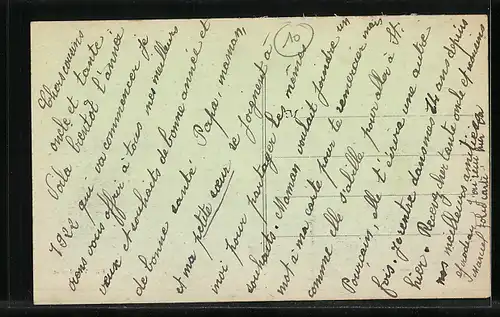 10
Chers cousins
oncle et tante
Voila bientot l'année
1922 qui va commencer je
viens vous offrir à tous mes meilleurs
vœux et souhaits de bonne année et
de bonne santé Papa, maman,
et ma petite sœur se joignent à
moi pour partager les mêmes
souhaits. Maman voulait joindre un
mot a ma carte pour te remercier mais
comme elle s'habille pour aller à St.
Pourcain, elle t'écrira une autre
fois. J'rentre dans mes 11 ans depuis
hier. Recoyez cher tante oncle et cousins
nos meilleurs amitiées